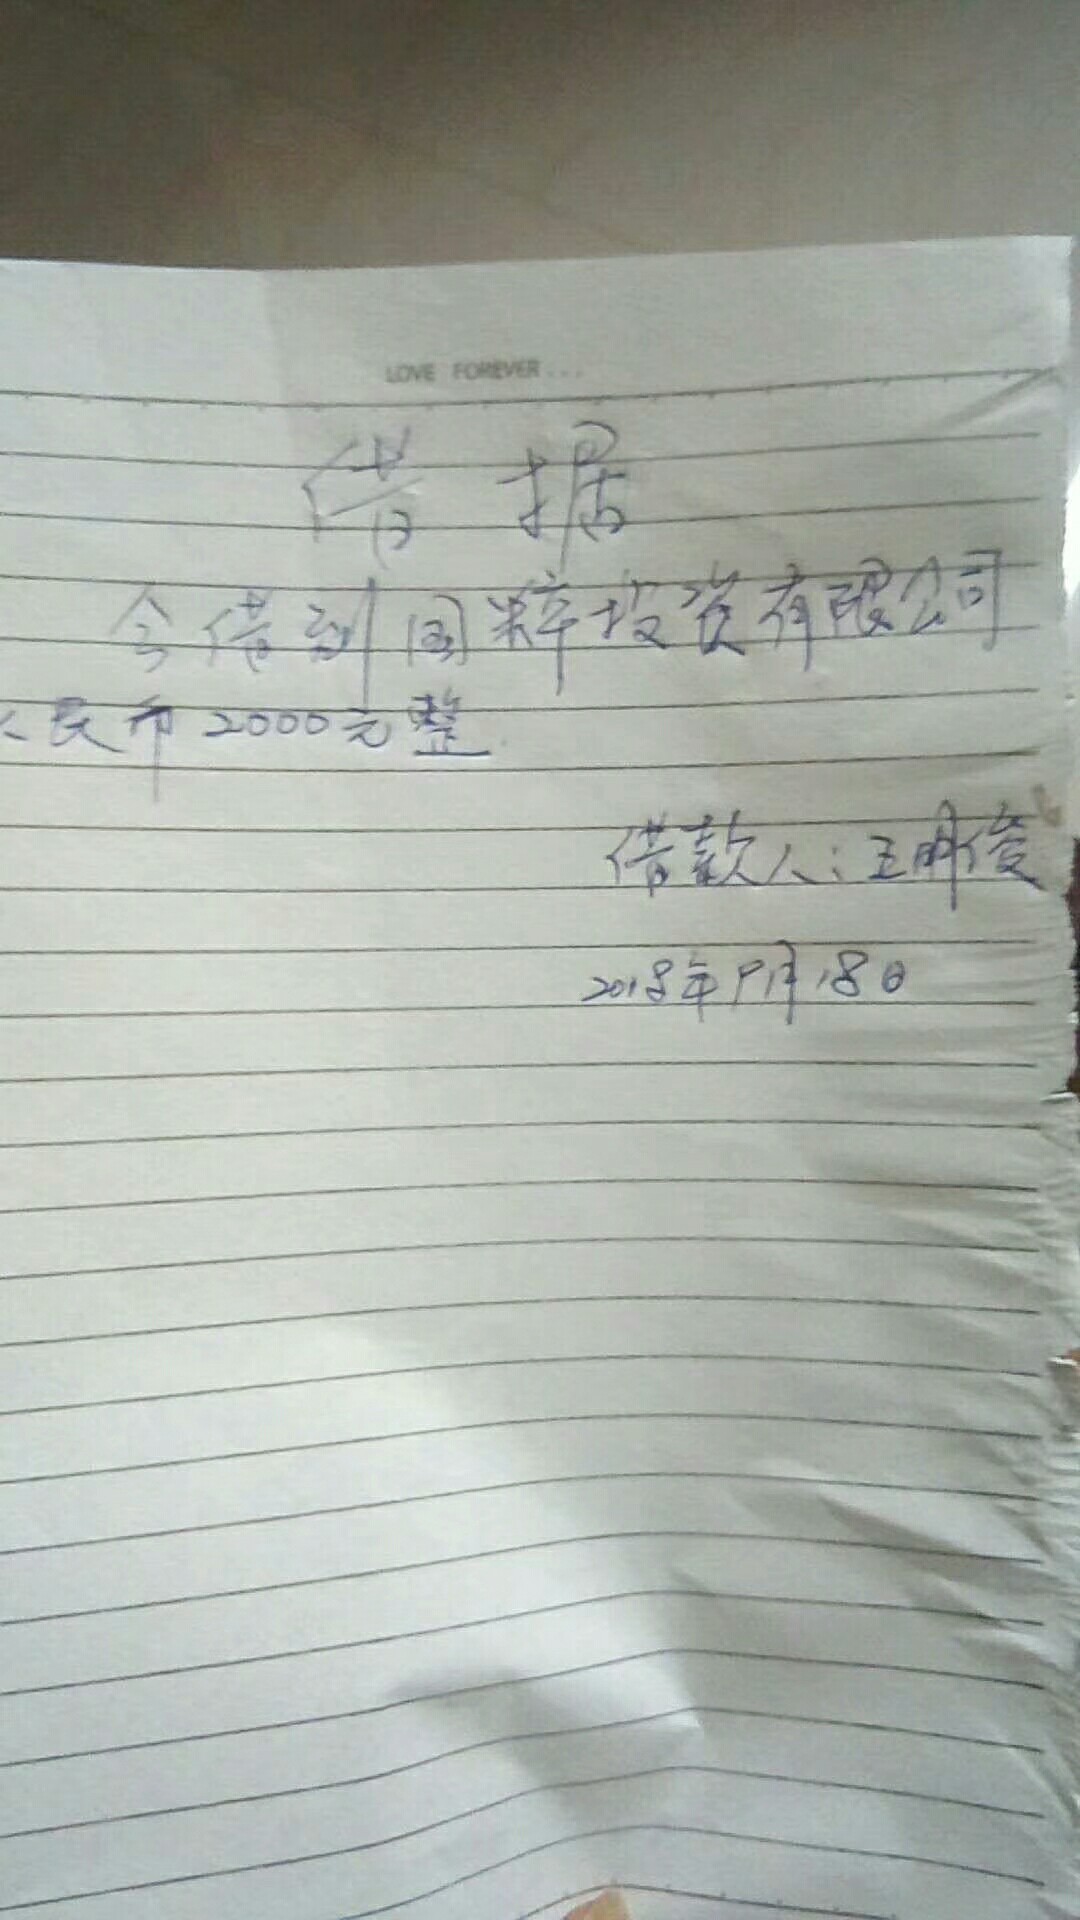 LOVE FOREVER...
借据
今借到国粹投资有限公司
人民币2000元整
借款人:王明俊
2018年9月18日